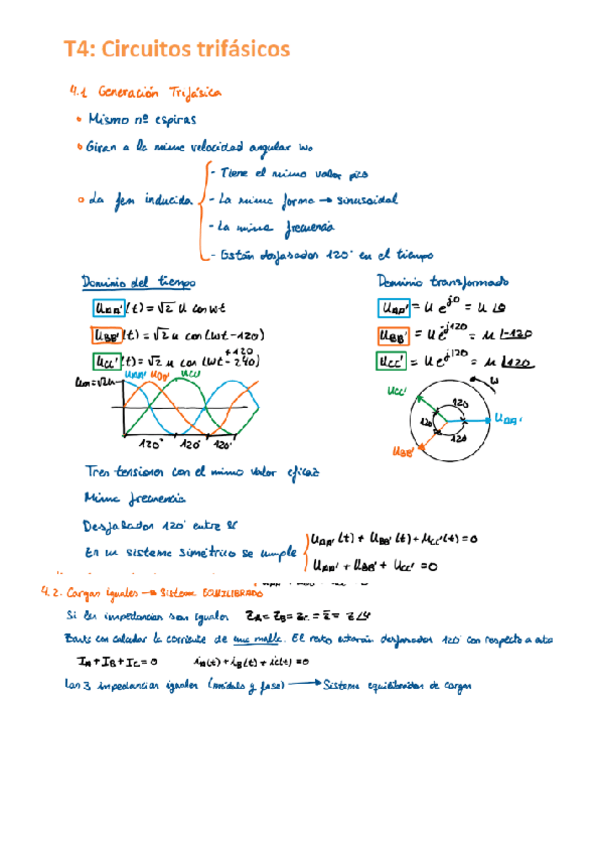 T4: Circuitos trifásicos
4.1 Generación Trifásica
• Mismo nº espiras
• Giran a la misma velocidad angular ω₀
• La fem inducida
- Tiene el mismo valor pico
- La misma forma → sinusoidal
- La misma frecuencia
- Están desfasadas 120° en el tiempo
Dominio del tiempo
Dominio transformado
U_AA'(t) = √2 U cos ωt
U_AA' = U e^j0 = U ∠0
U_BB'(t) = √2 U cos(ωt-120)
U_BB' = U e^-j120 = U ∠-120
+120
U_CC'(t) = √2 U cos(ωt-240)
U_CC' = U e^j120 = U ∠120
U_AA' U_BB' U_CC'
120° 120° 120°
U_CC' 120 ω
120 U_AA'
120
U_BB'
Tres tensiones con el mismo valor eficaz
Misma frecuencia
Desfasadas 120° entre sí
En un sistema simétrico se cumple
U_AA'(t) + U_BB'(t) + U_CC'(t) = 0
U_AA' + U_BB' + U_CC' = 0
4.2. Cargas iguales → Sistema EQUILIBRADO
Si las impedancias son iguales Z_A = Z_B = Z_C = Z = Z∠φ
Basta con calcular la corriente de una malla. El resto estarán desfasadas 120° con respecto a esta
I_A + I_B + I_C = 0 i_A(t) + i_B(t) + i_C(t) = 0
Las 3 impedancias iguales (módulo y fase) → Sistema equilibrado de cargas